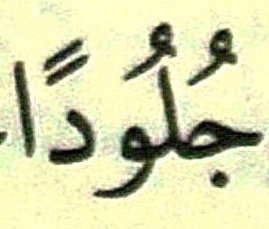 جُلُودًا